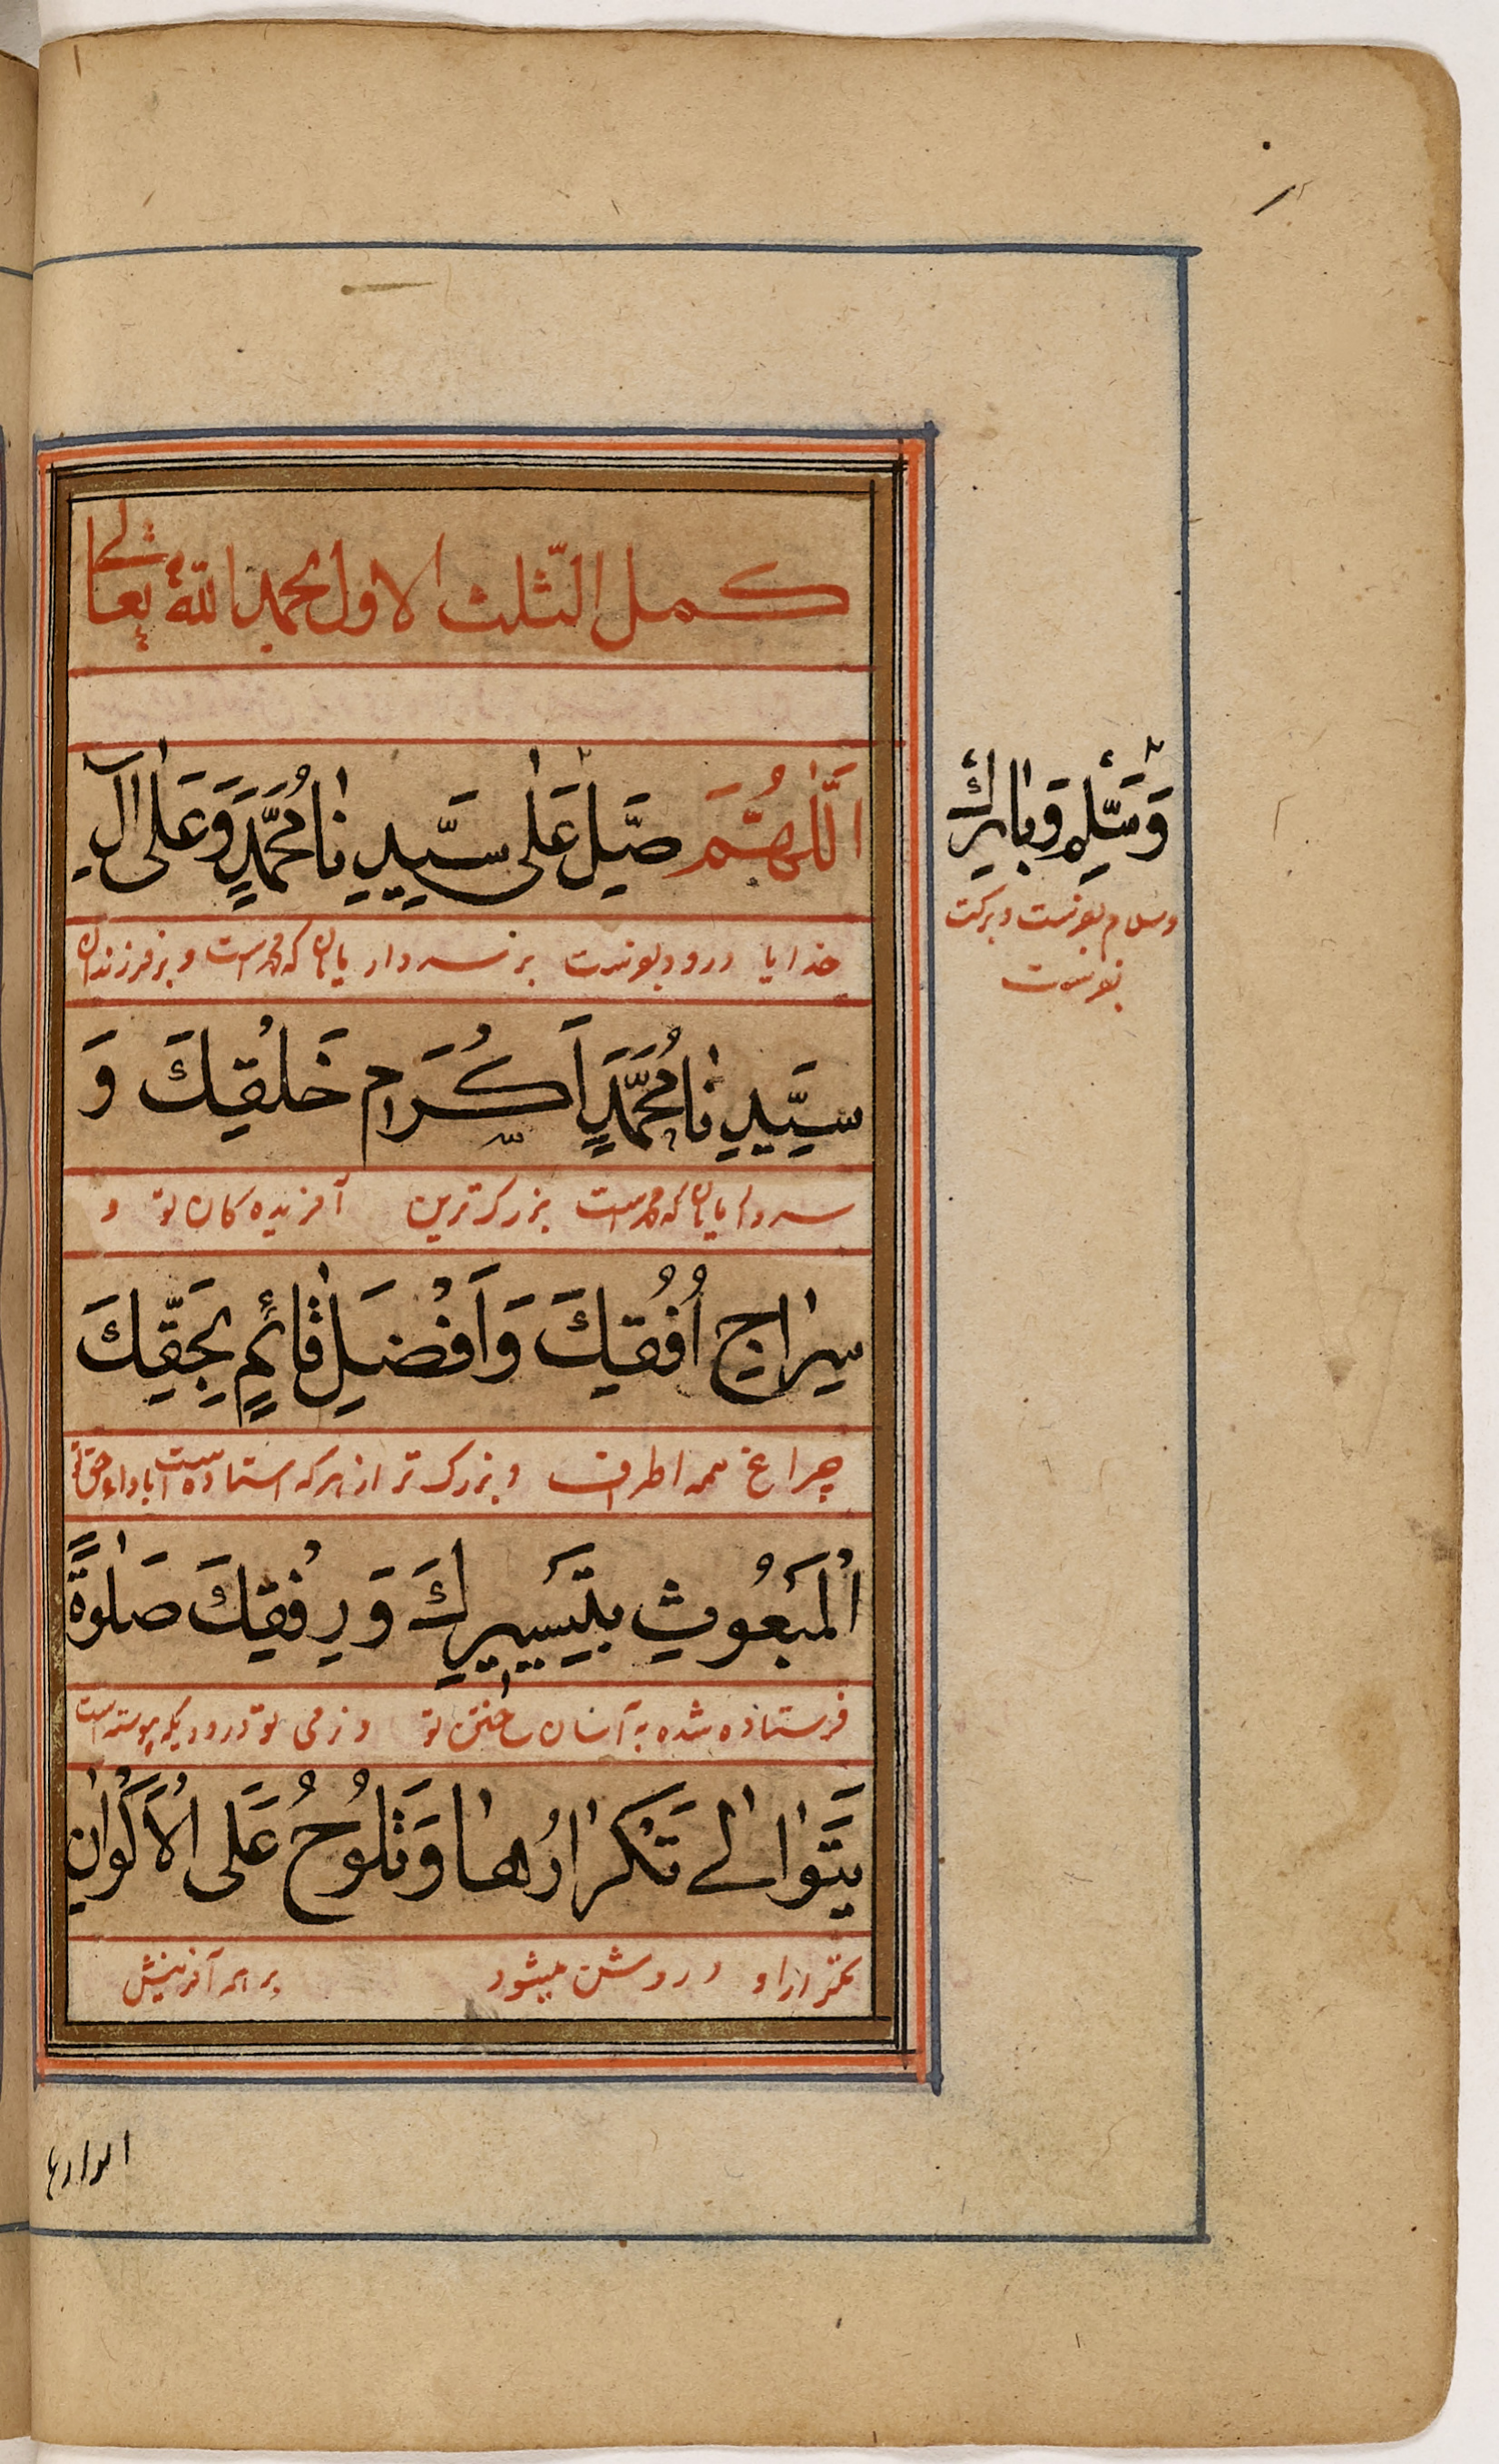 كمل الثلث الاول بحمد الله تعالى
اَللّٰهُمَّ صَلِّ عَلٰى سَيِّدِنَا مُحَمَّدٍ وَعَلٰى اٰلِ
خدایا درود بفرست بر سردار یا که محمد است و بر فرزندان
سَيِّدِنَا مُحَمَّدٍ اَكْرَمِ خَلْقِكَ وَ
سردار یا که محمد است بزرگ ترین آفریده کان تو و
سِرَاجِ اُفُقِكَ وَاَفْضَلِ قَائِمٍ بِحَقِّكَ
چراغ همه اطراف و بزرگ تر از هر که استاده است باداء حق تو
اَلْمَبْعُوثِ بِتَيْسِيرِكَ وَرِفْقِكَ صَلٰوةً
فرستاده شده به آسان ساختن تو و نرمی تو درودیکه پیوسته است
يَتَوَالٰى تَكْرَارُهَا وَتَلُوحُ عَلَى الْاَكْوَانِ
تکرار او و روشن میشود بر همه آفرینش
انوارها
وَسَلِّمْ وَبَارِكْ
وسلام بفرست و برکت
بفرست